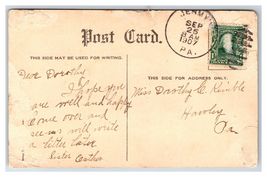 Post Card.
JENNY
SEP
25
1907
PA.
THIS SIDE MAY BE USED FOR WRITING.
THIS SIDE FOR ADDRESS ONLY.
Dear Dorothy
I hope you
are well and happy
come over and
see us will write
a letter later
Sister Esther
Miss Dorothy C. Kimble
Hawley
Pa